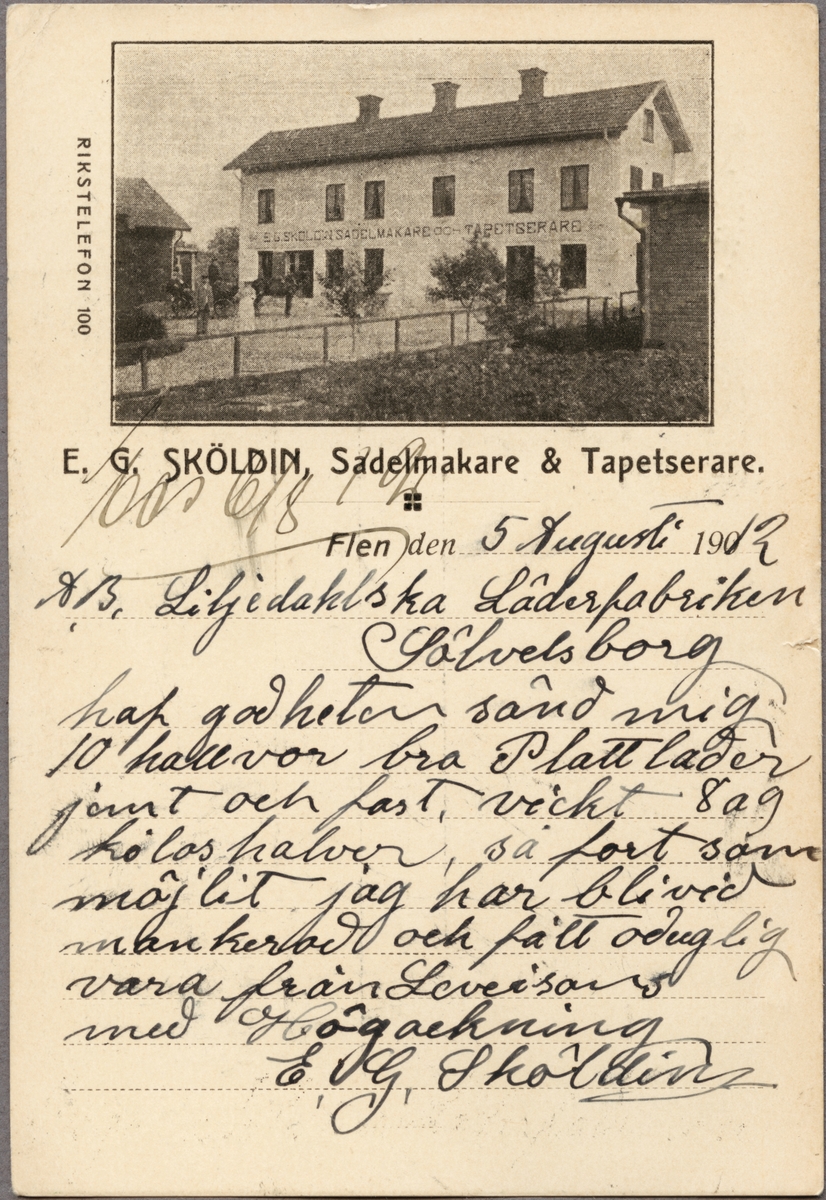 RIKSTELEFON 100
E. G. SKÖLDIN SADELMAKARE OCH TAPETSERARE
E. G. SKÖLDIN, Sadelmakare & Tapetserare.
6/8 12
Flen den 5 Augusti 1912
A.B. Liljedahlska Läderfabriken
Sölvelsborg
haf godheten sänd mig
10 hallvor bra Plattläder
jemt och fast, vickt 8 a 9
kilos halver, så fort som
möjlit jag har blivid
mankerad och fått oduglig
vara från Leveisons
med Högacktning
E. G. Sköldin